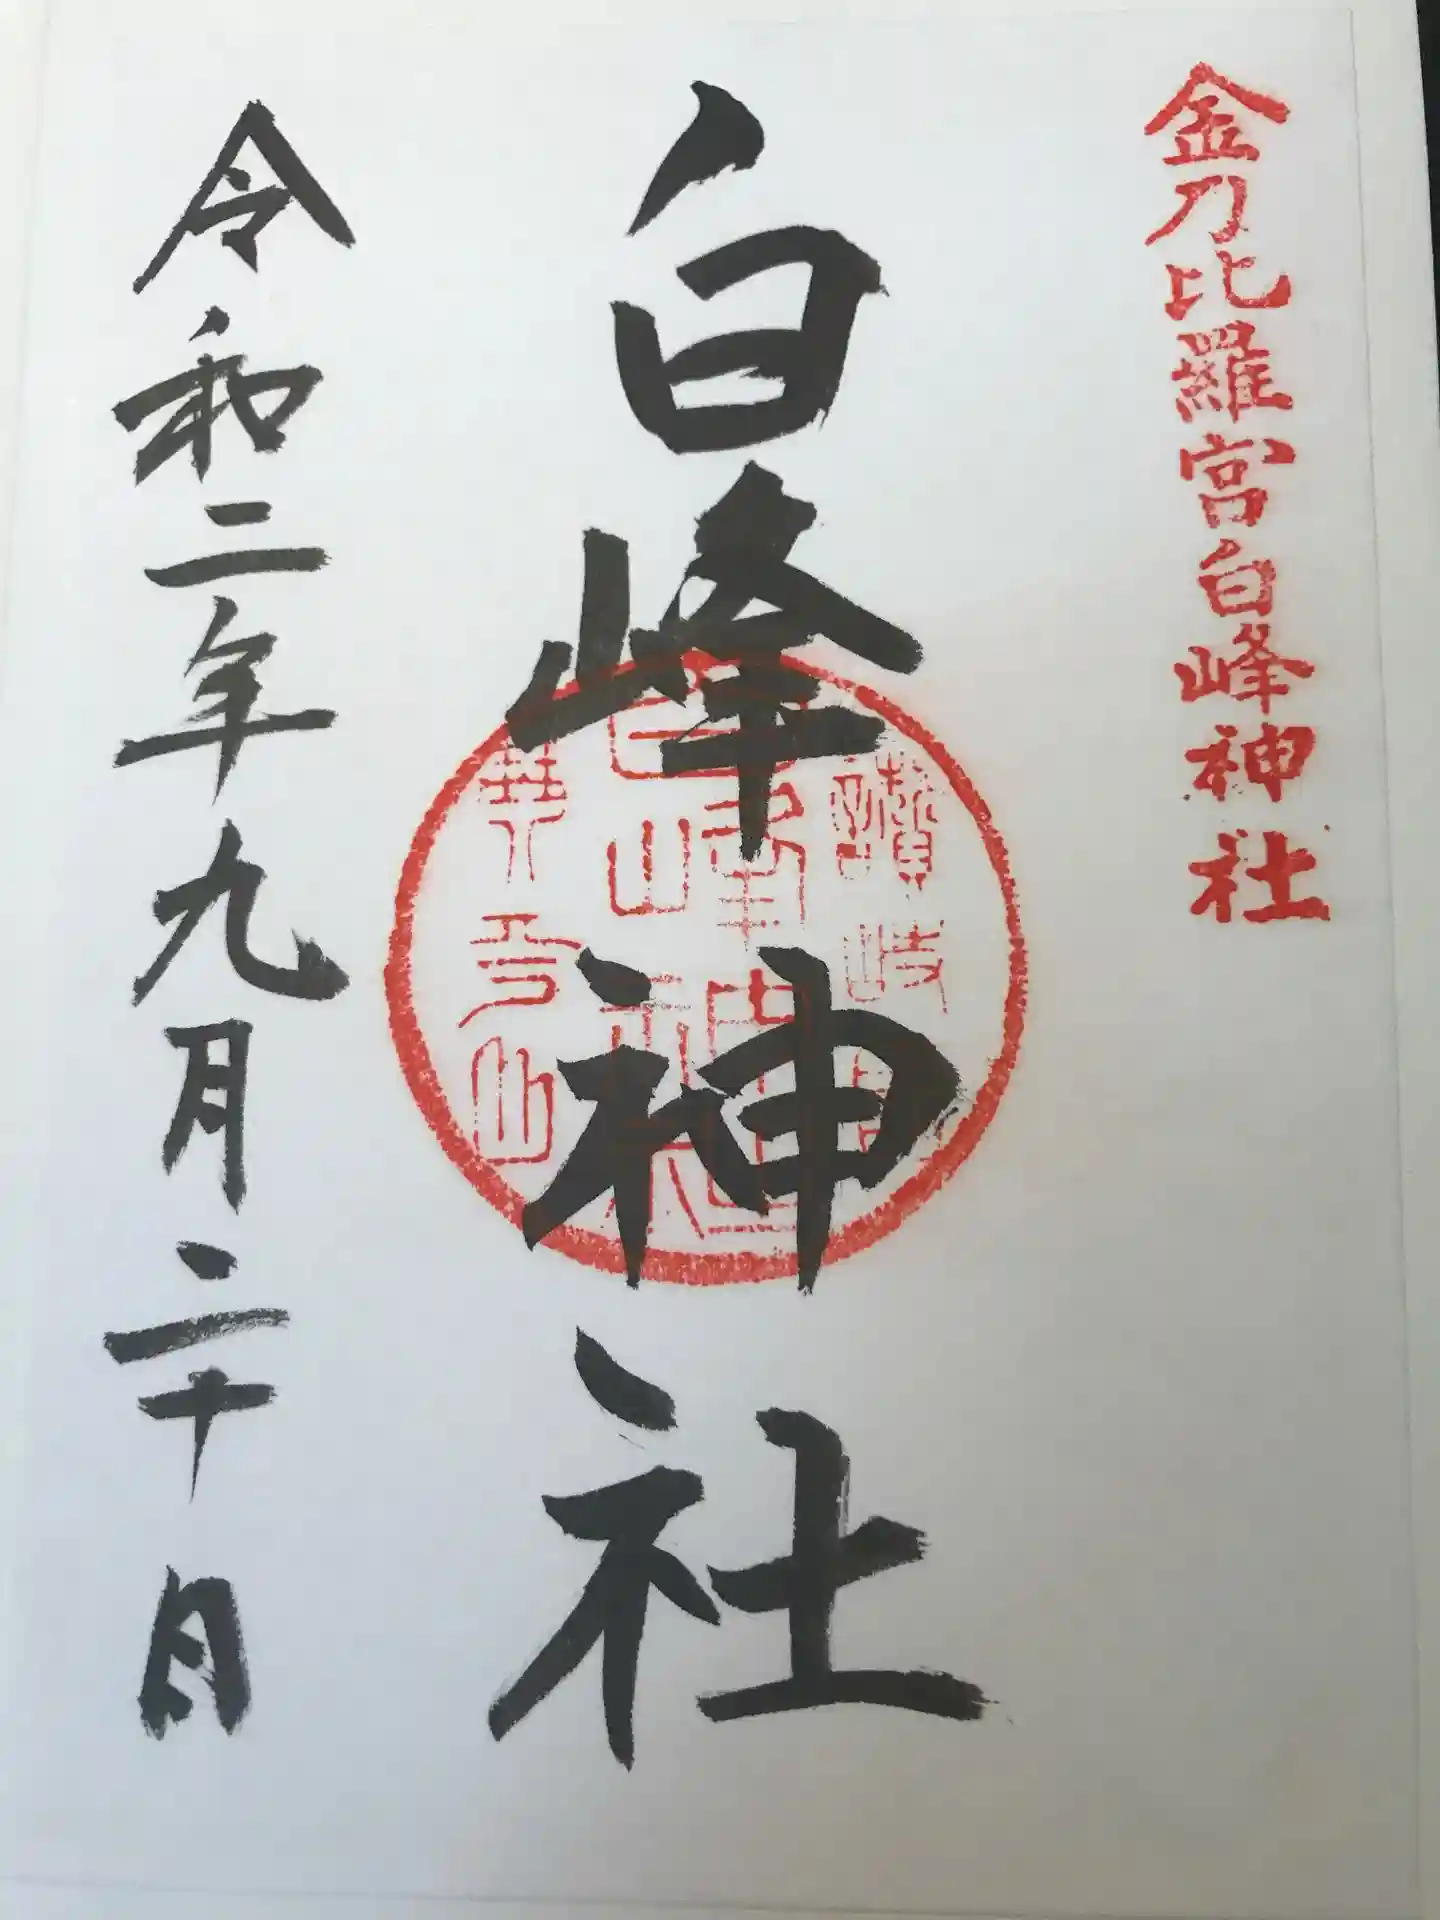 金刀比羅宮白峰神社
白峰神社
讃岐
白峰神社
象頭山
令和二年九月二十日